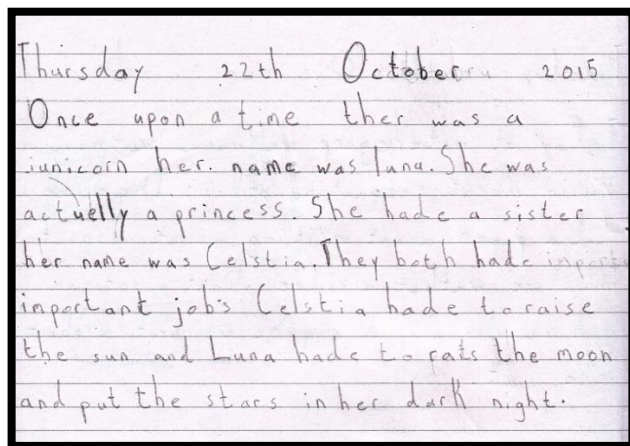 Thursday 22th October 2015
Once upon a time ther was a
iunicorn her. name was luna. She was
actuelly a princess. She hade a sister
her name was Celstia. They both hade importa
important job's Celstia hade to raise
the sun and Luna hade to rats the moon
and put the stars in her dark night.